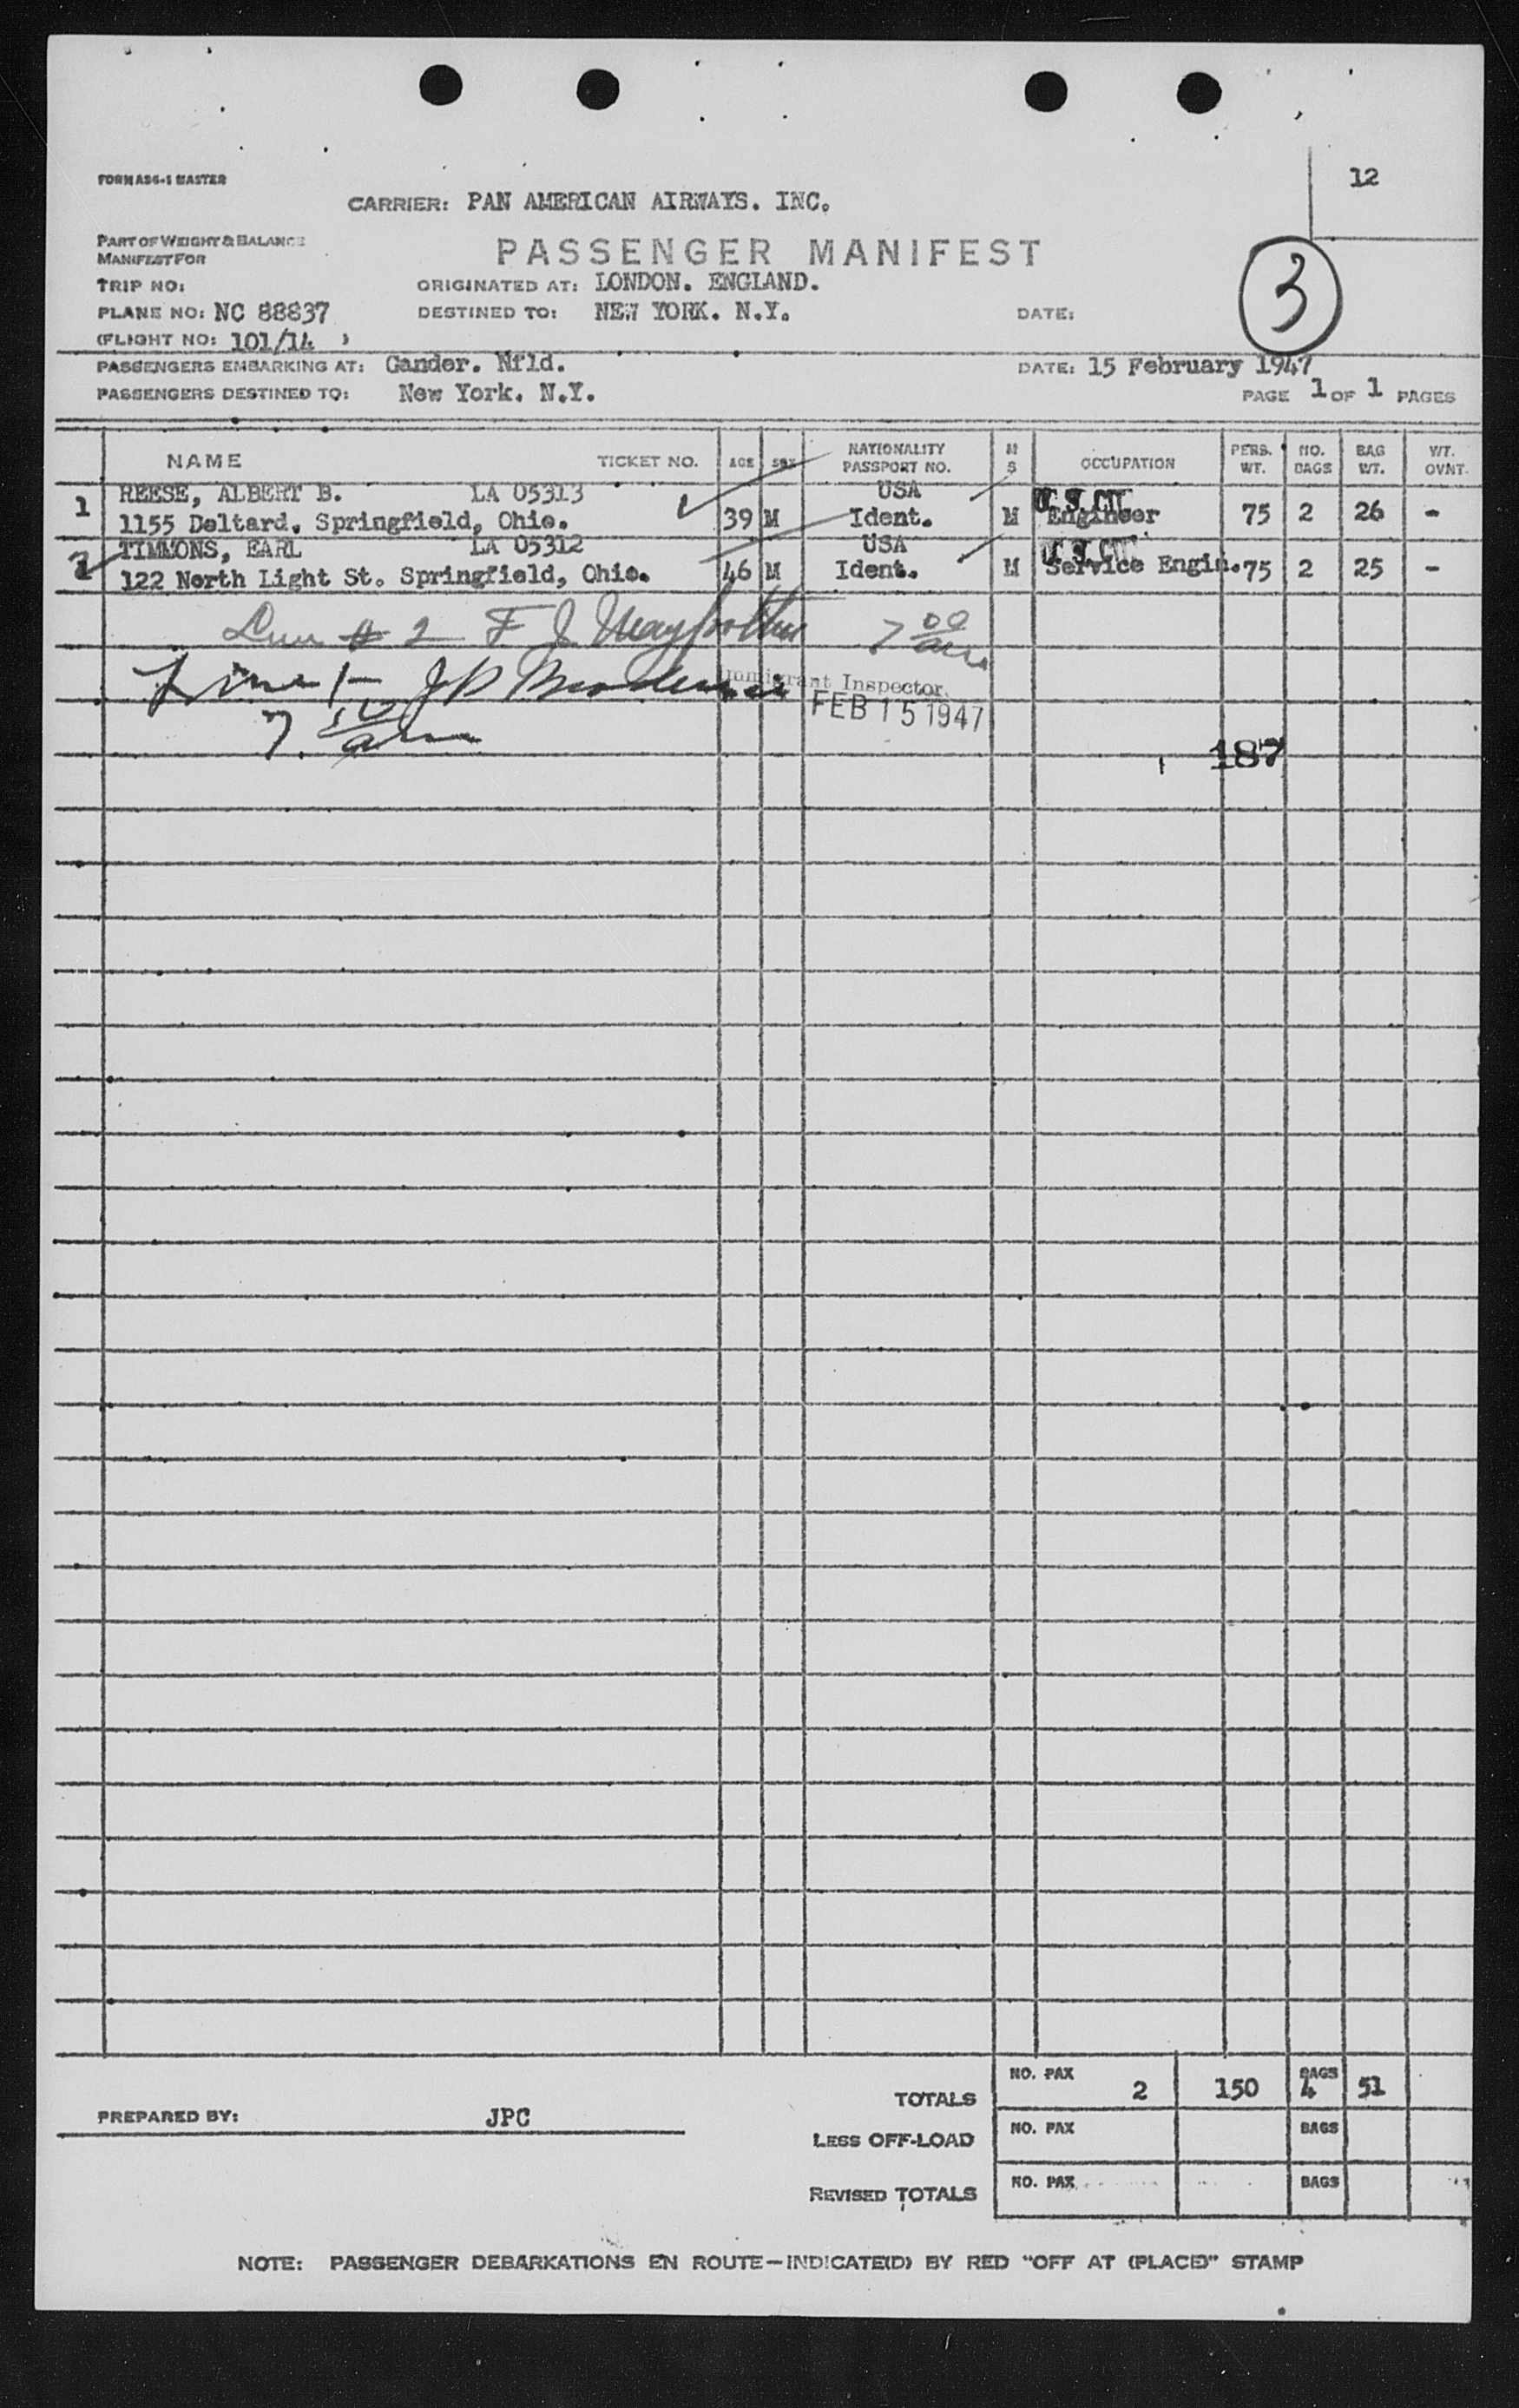 12
FORM AS6-1 MASTER
CARRIER: PAN AMERICAN AIRWAYS. INC.
PART OF WEIGHT & BALANCE
MANIFEST FOR
PASSENGER MANIFEST
3
TRIP NO:
ORIGINATED AT: LONDON. ENGLAND.
PLANE NO: NC 88837
DESTINED TO: NEW YORK. N.Y.
DATE:
(FLIGHT NO: 101/14 )
PASSENGERS EMBARKING AT: Gander. Nfld.
DATE: 15 February 1947
PASSENGERS DESTINED TO: New York. N.Y.
PAGE 1 OF 1 PAGES
NAME TICKET NO. AGE SEX NATIONALITY PASSPORT NO. M S OCCUPATION PERS. WT. NO. BAGS BAG WT. WT. OVNT.
REESE, ALBERT B. LA 05313 USA U.S. CIT.
1 1155 Deltard. Springfield, Ohio. 39 M Ident. M Engineer 75 2 26 -
TIMMONS, EARL LA 05312 USA U.S. CIT.
2 122 North Light St. Springfield, Ohio. 46 M Ident. M Service Engin. 75 2 25 -
# 2 F J 7 00 am
Line 1 - J P
Immigrant Inspector.
FEB 15 1947
7. am
187
TOTALS NO. PAX 2 150 BAGS 4 51
PREPARED BY: JPC
LESS OFF-LOAD NO. PAX BAGS
REVISED TOTALS NO. PAX BAGS
NOTE: PASSENGER DEBARKATIONS EN ROUTE—INDICATE(D) BY RED "OFF AT (PLACE)" STAMP